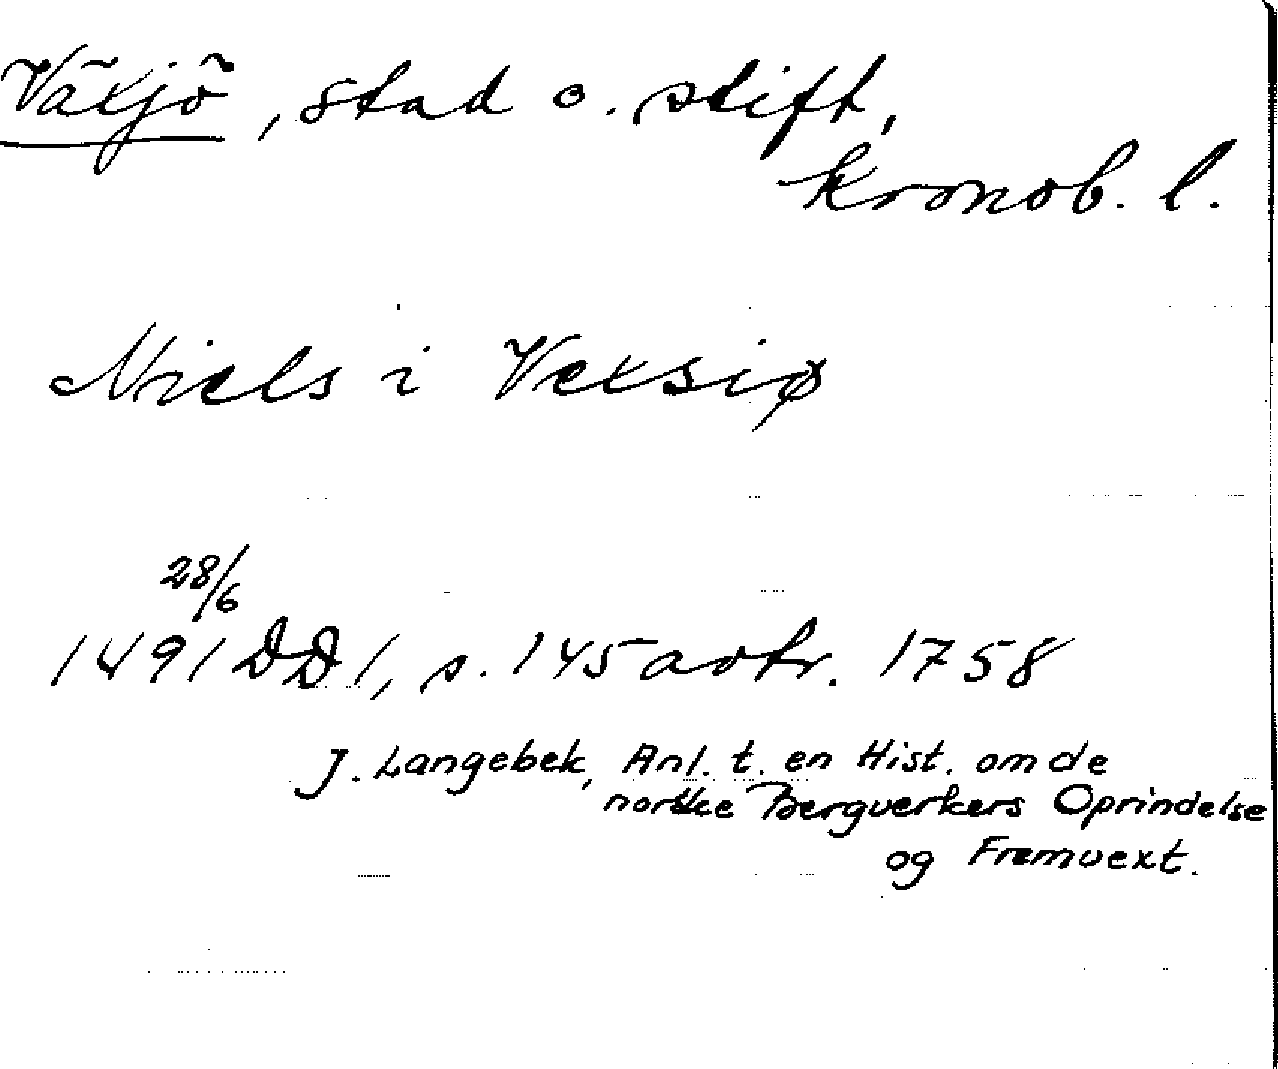 Växjö, stad o. stift,
Kronob. l.
Niels i Vexsiø
28/6
1491 DD 1, s. 145 avtr. 1758
J. Langebek, Anl. t. en Hist. om de
norske Bergverkers Oprindelse
og Fremvext.